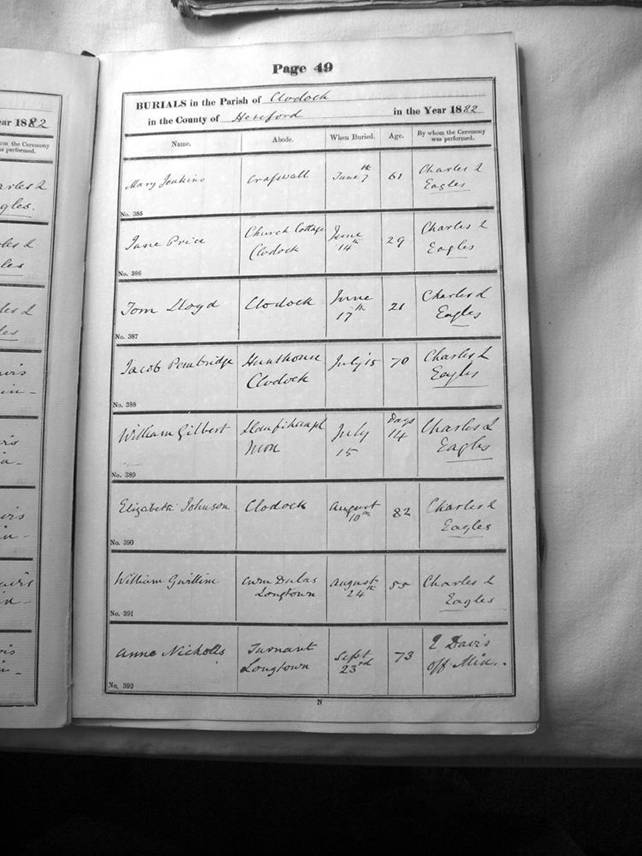 Page 49
BURIALS in the Parish of Clodock
in the County of Hereford in the Year 1882
Name. Abode. When Buried. Age. By whom the Ceremony was performed.
Mary Jenkins Craswall June 7th 61 Charles L
Eagles
No. 385
Jane Price Church Cottage June 29 Charles L
Clodock 14th Eagles
No. 386
Tom Lloyd Clodock June 21 Charles L
17th Eagles
No. 387
Jacob Pembridge Hunthouse July 15 70 Charles L
Clodock Eagles
No. 388
William Gilbert July Days Charles L
Mon 15 14 Eagles
No. 389
Elizabeth Johnson Clodock August 82 Charles L
10th Eagles
No. 390
William Gwillim Cwm Dulas August 55 Charles L
Longtown 24th Eagles
No. 391
Anne Nicholls Turnant Sept 73 Davis
Longtown 23rd off Min.
No. 392
N
ear 1882
hom the Ceremony
was performed.
arles L
agles.